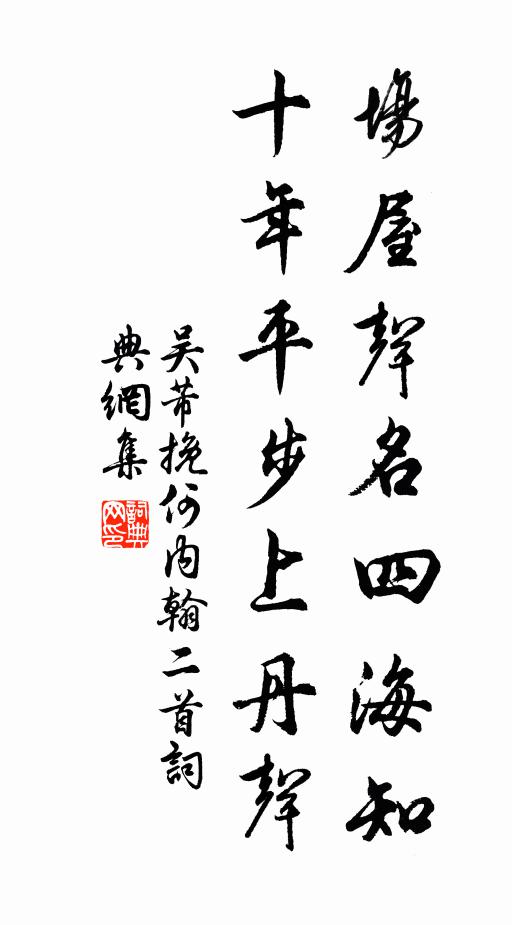 場屋聲名四海知
十年平步上丹聲
吴芾挽何内翰二首詞
典網集
詞典网印